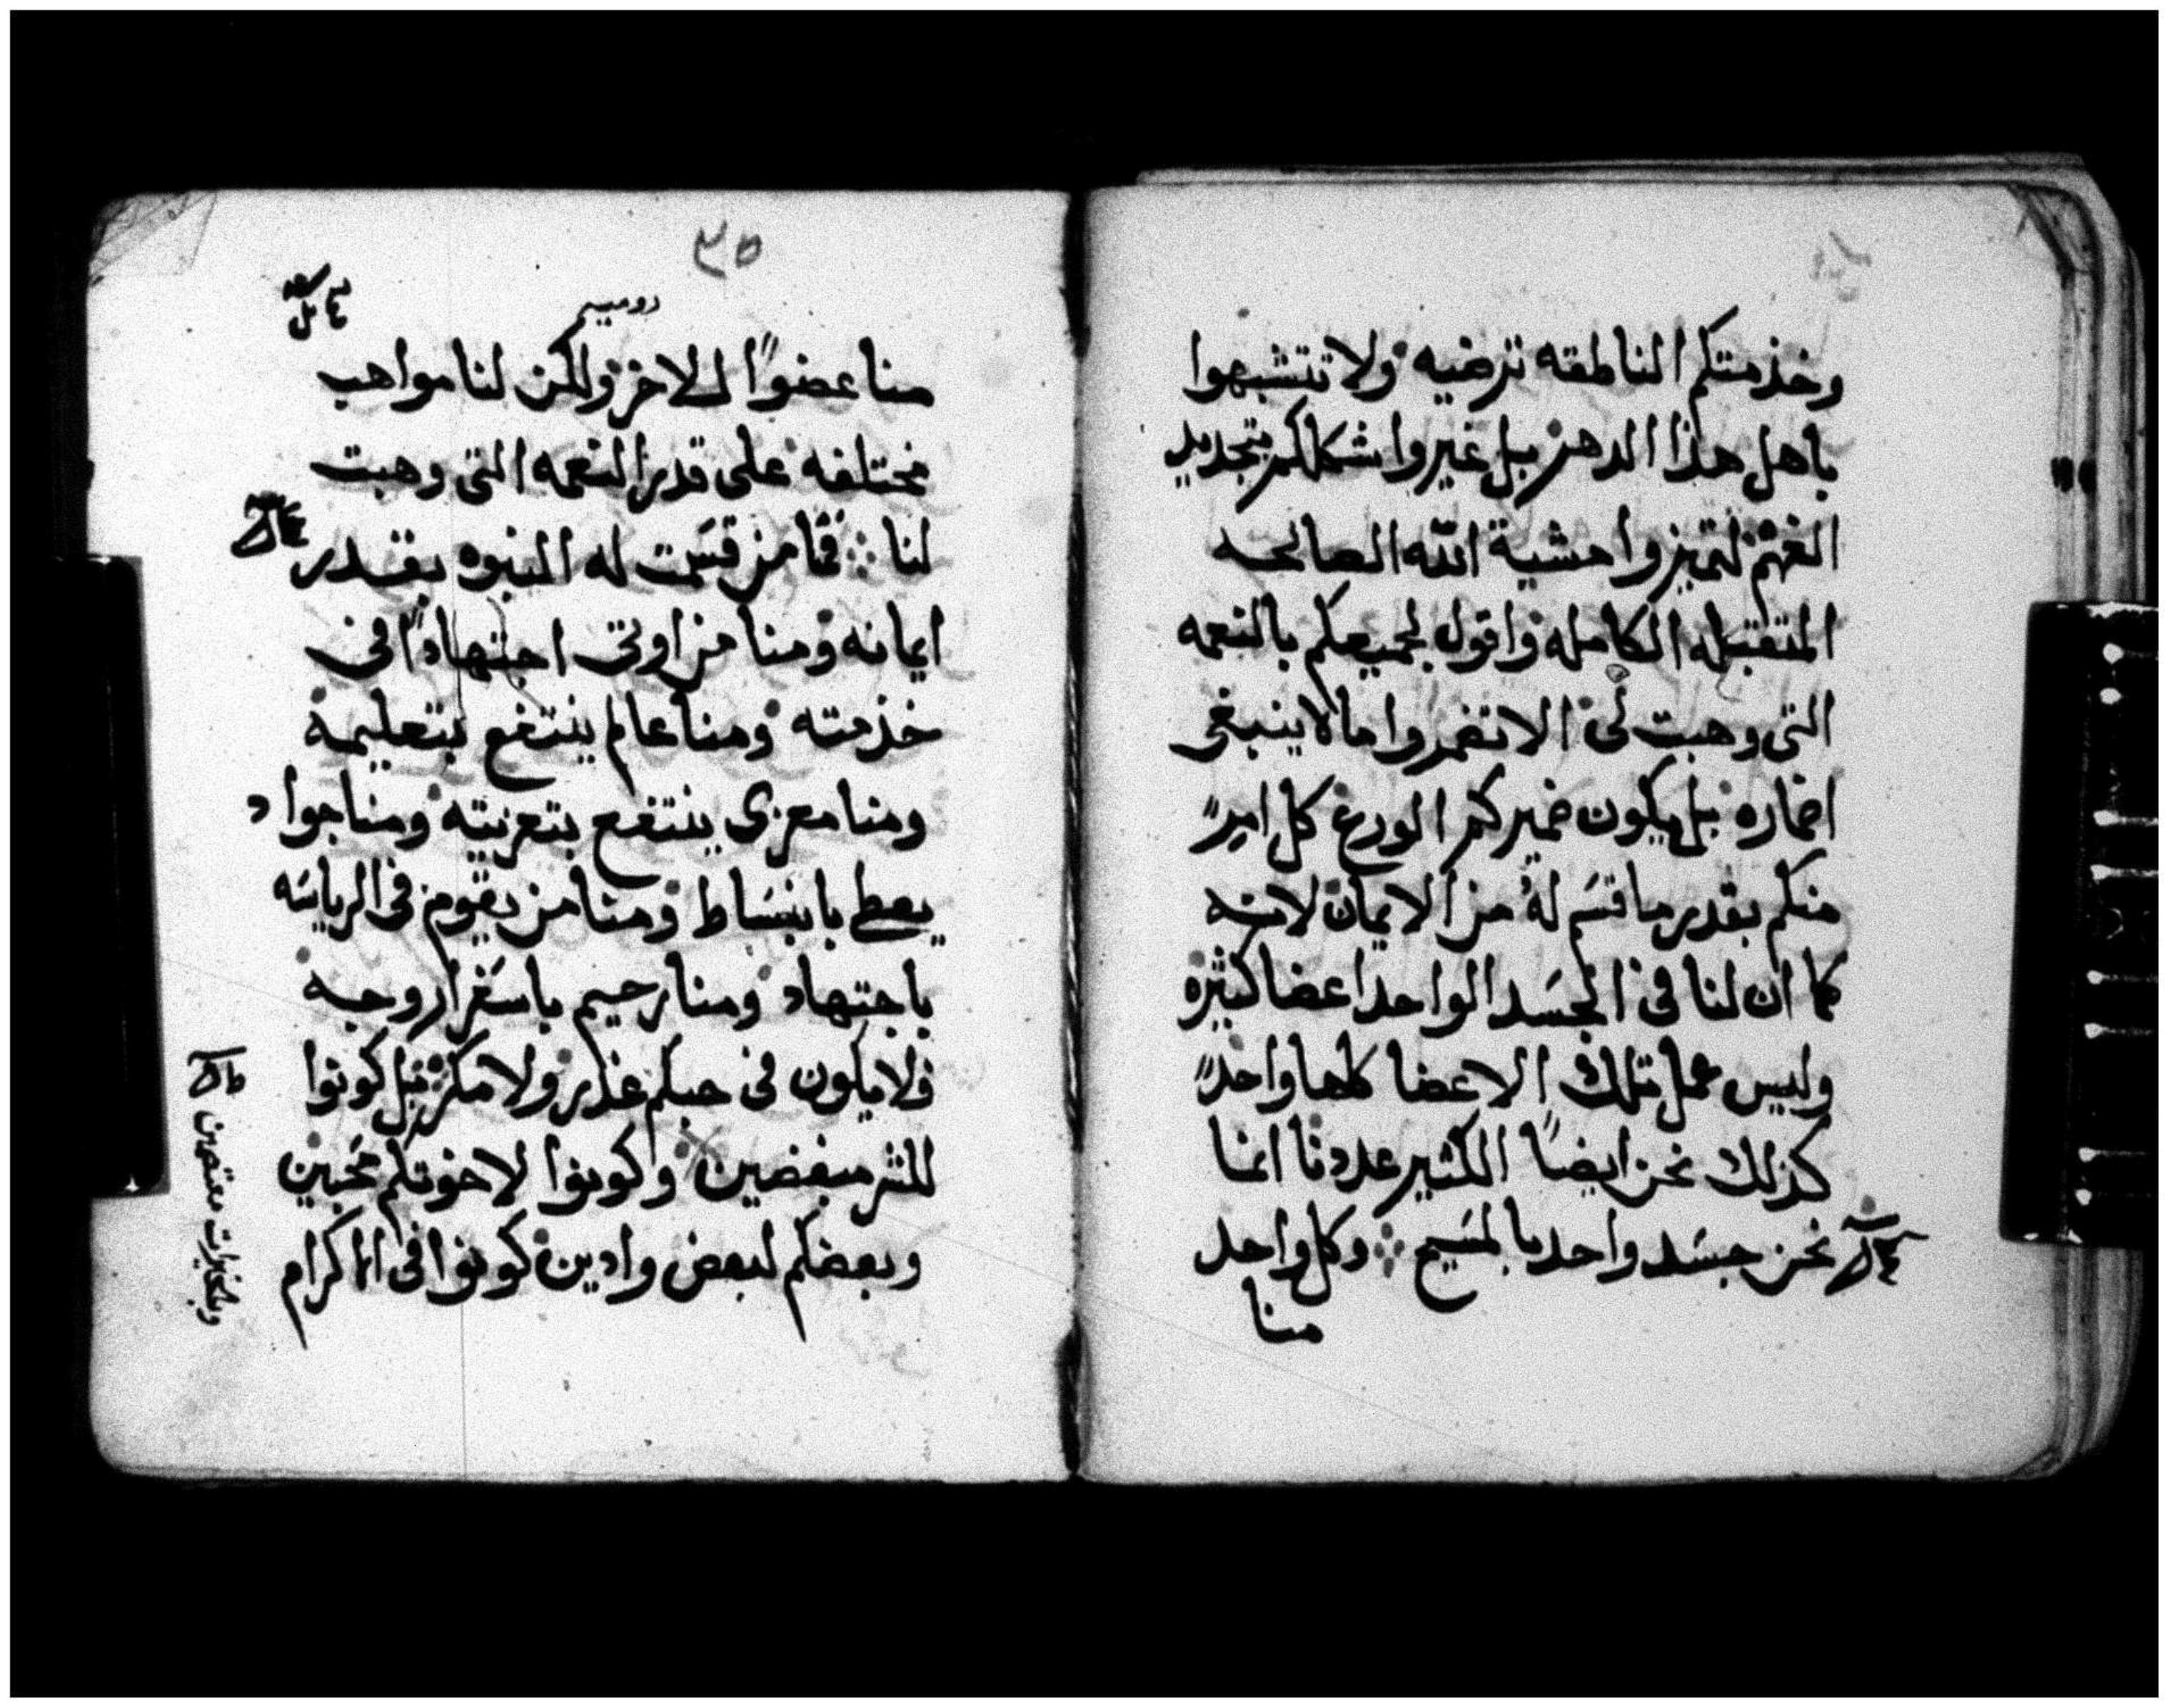 وخذمتكم الناطقه ترضيه ولا تتشبهوا
باهل هذا الدهر بل غيروا شكلكم بتجديد
الفهم لتميزوا مشية الله الصالحه
المتقبله الكامله واقول لجميعكم بالنعمه
التى وهبت لى الا تضمروا ما لا ينبغى
اضماره بل يكون ضميركم الورع كل امرٍ
منكم بقدر ما قسَم لهُ من الايمان لانه
كما ان لنا فى الجسَد الواحد اعضا كثيره
وليس عمل تلك الاعضا كلها واحدً
كذلك نحن ايضاً الكثير عددنا انما
نحن جسَد واحد بالمسَيح وكل واحد
منا
٣٥
روميه
منا عضواً للاخر ولكن لنا مواهب
مختلفه على قدر النعمه التى وهبت
لنا فمنا من قسَمت له النبوه بقدر
ايمانه ومنا من اوتى اجتهاداً فى
خذمته ومنا عالم ينتفع بتعليمه
ومنا معزى ينتفع بتعزيته ومنا جواد
يعطى بانبسَاط ومنا من يقوم فى الرياسَه
باجتهاد ومنا رحيم باسَفرار وجه
ولا يكون فى حبكم غذر ولا مكر بل كونوا
للشر مبغضين وكونوا لاخوتكم محَبين
وبعضكم لبعض وادين كونوا فى اكرام